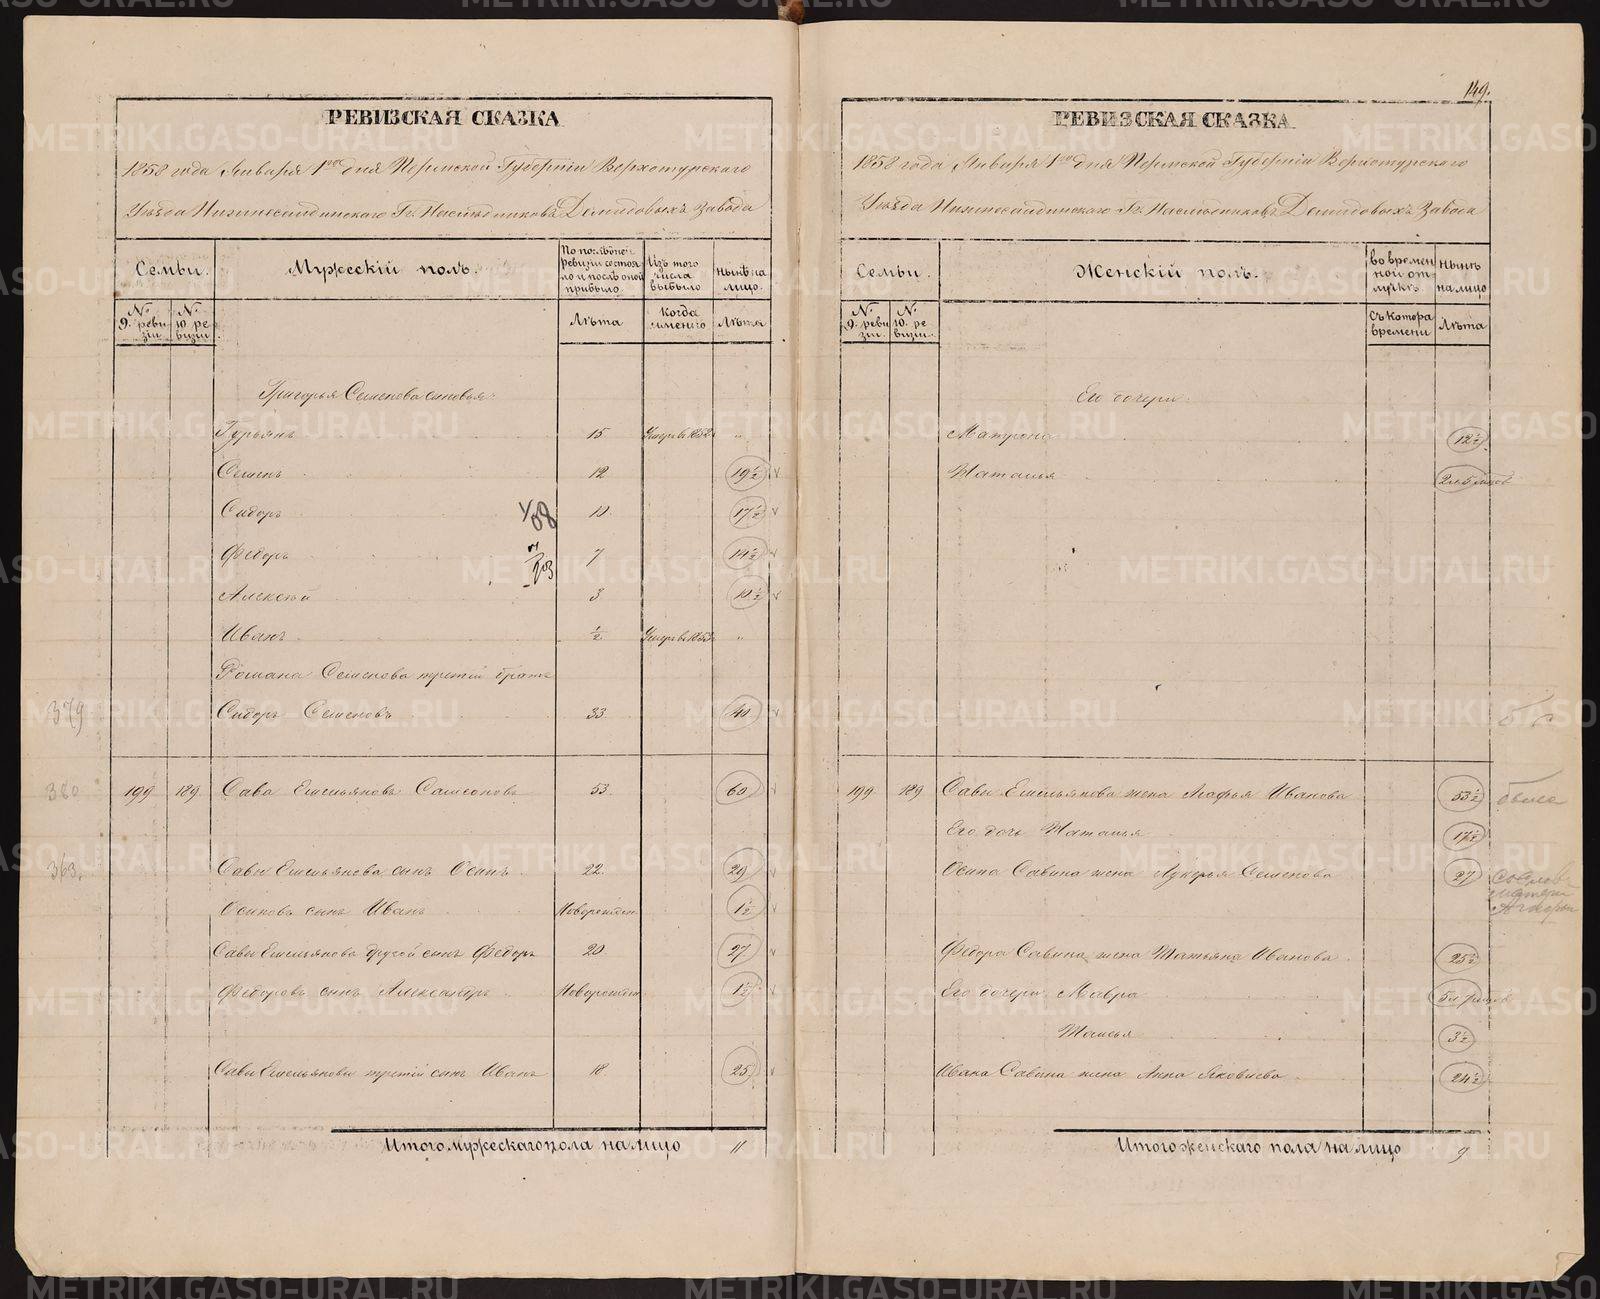 РЕВИЗСКАЯ СКАЗКА
1858 года Января 1го дня Пермской Губерніи Верхотурскаго
Уѣзда Нижнесалдинскаго Гг. Наслѣдниковъ Демидовыхъ Завода
Семьи.
Мужескій полъ.
По послѣдней ревизіи состояло и послѣ оной прибыло.
Изъ того числа выбыло
Нынѣ на лицо.
№ 9. ревизіи
№ 10. ревизіи
Лѣта
Когда именно
Лѣта
Григорья Семенова сыновья
Гурьянъ 15 Умеръ въ 1852 "
Семенъ 12 19½
Сидоръ 10 17½
Федоръ 7 14½
Алексѣй 3 10½
Иванъ ½ Умеръ въ 1853 "
Романа Семенова третій братъ
379 Сидоръ Семеновъ 33 40
380 199 189 Сава Емельяновъ Самсоновъ 53 60
363. Савы Емельянова сынъ Осипъ 22 29
Осиповъ сынъ Иванъ Новорожден 1½
Савы Емельянова другой сынъ Федоръ 20 27
Федоровъ сынъ Александръ Новорожден 1½
Савы Емельянова третій сынъ Иванъ 18 25
Итого мужескаго пола на лицо 11
149.
РЕВИЗСКАЯ СКАЗКА
1858 года Января 1го дня Пермской Губерніи Верхотурскаго
Уѣзда Нижнесалдинскаго Гг. Наслѣдниковъ Демидовыхъ Завода
Семьи.
Женскій полъ.
Во временной отлучкѣ
Нынѣ на лицо
№ 9. ревизіи
№ 10. ревизіи
Съ котора времени
Лѣта
Его дочери
Матрона 12½
Наталья
199 189 Савы Емельянова жена Агафья Иванова 53½
Его дочь Наталья 17½
Осипа Савина жена Лукерья Семенова 27
Федора Савина жена Татьяна Иванова 25½
Его дочери Мавра
Таисья 3½
Ивана Савина жена Анна Яковлева 24½
Итого женскаго пола на лицо 9
METRIKI.GASO-URAL.RU